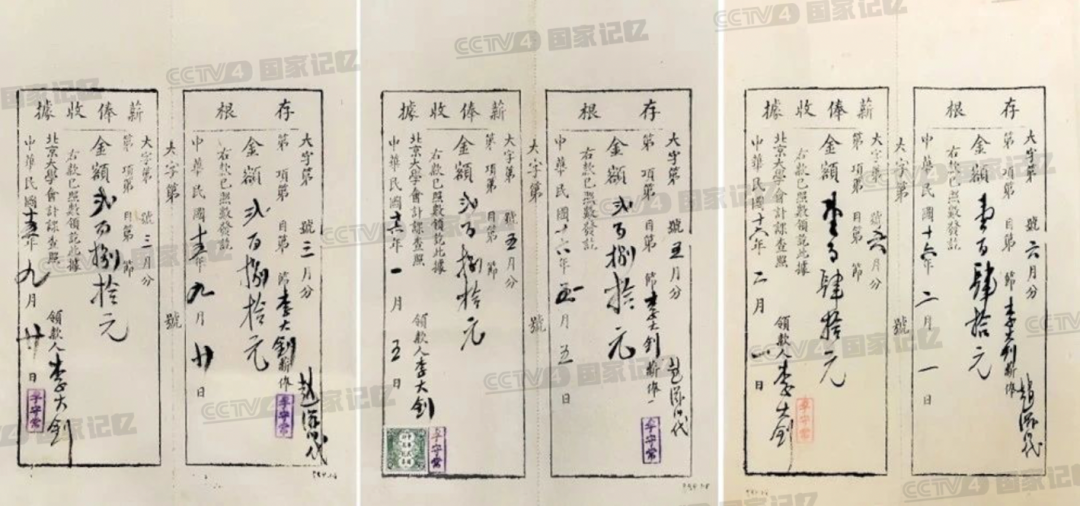 CCTV4 国家记忆
薪俸收據
大字第 號 三月分
第 項第 目第 節
金額 貳百捌拾元
右款已照數領訖此據
北京大學會計課查照
中華民國十五年九月廿日
領款人 李大釗
李守常
大字第 號
存根
大字第 號 三月分
第 項第 目第 節 李大釗
金額 貳百捌拾元
右款已照數發訖
中華民國十五年九月廿日
李守常
CCTV4 国家记忆
薪俸收據
大字第 號 五月分
第 項第 目第 節
金額 貳百捌拾元
右款已照數領訖此據
北京大學會計課查照
中華民國十六年一月五日
領款人 李大釗
李守常
大字第 號
存根
大字第 號 五月分
第 項第 目第 節 李大釗薪俸
金額 貳百捌拾元
右款已照數發訖
中華民國十六年 月五日
李守常
CCTV4 国家记忆
薪俸收據
大字第 號 六月分
第 項第 目第 節
金額 壹百肆拾元
右款已照數領訖此據
北京大學會計課查照
中華民國十六年二月一日
領款人 李大釗
李守常
大字第 號
存根
大字第 號 六月分
第 項第 目第 節 李大釗薪俸
金額 壹百肆拾元
右款已照數發訖
中華民國十六年二月一日